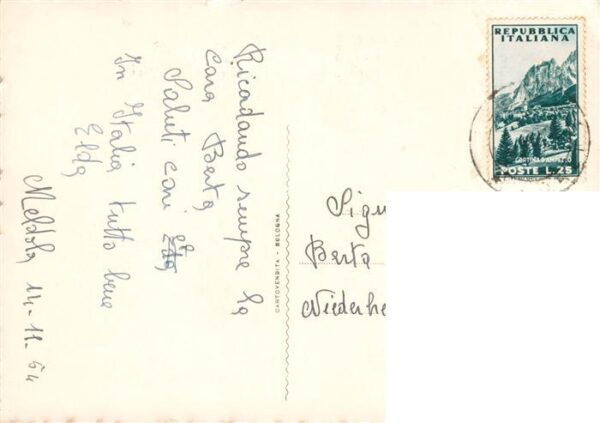 Ricadando sempre la
cara Berta
Saluti cari Elda
In Italia tutto bene
Elda
Meldola 14-11-54
CARTOVENDITA - BOLOGNA
REPUBBLICA
ITALIANA
CORTINA D'AMPEZZO
POSTE L.25
Sign
Berta
Niederhe